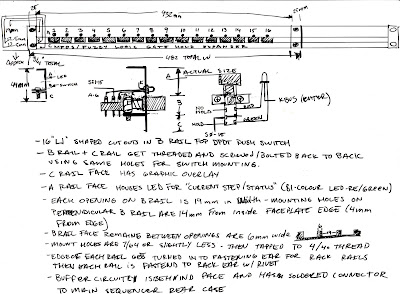 432mm
1 2 3 4 5 6 7 8 9 10 11 12 13 14 15 16
FUZZY LOGIC GATE HOLD EXPANDER
482 TOTAL W
TOTAL
44mm
A-LED
B-SWITCH
C
SIDE
A
B
C
ACTUAL SIZE
NO HOLD
HOLD
RED
GREEN
- 16 "U" SHAPED CUTOUTS IN B RAIL FOR DPDT PUSH SWITCH
- B RAIL + C RAIL GET THREADED AND SCREWED/BOLTED BACK TO BACK
USING SAME HOLES FOR SWITCH MOUNTING.
- C RAIL FACE HAS GRAPHIC OVERLAY
- A RAIL FACE HOUSES LED FOR "CURRENT STEP/STATUS" (BI-COLOUR LED-RE/GREEN)
- EACH OPENING ON B RAIL IS 19mm IN WIDTH - MOUNTING HOLES ON
PERPENDICULAR B RAIL ARE 14mm FROM INSIDE FACEPLATE EDGE (4mm
FROM EDGE)
- B RAIL FACE REMAINS BETWEEN OPENINGS ARE 6mm WIDE
- MOUNT HOLES ARE 7/64 OR SLIGHTLY LESS - THEN TAPPED TO 4/40 THREAD
- EDGE OF EACH RAIL GETS TURNED INTO FASTENING EAR FOR RACK RAILS
THEN EACH RAIL IS FASTEND TO RACK EAR W/ RIVET
- BUFFER CIRCUITRY IS BEHIND FACE AND HAS SOLDERED CONNECTOR
TO MAIN SEQUENCER REAR CASE